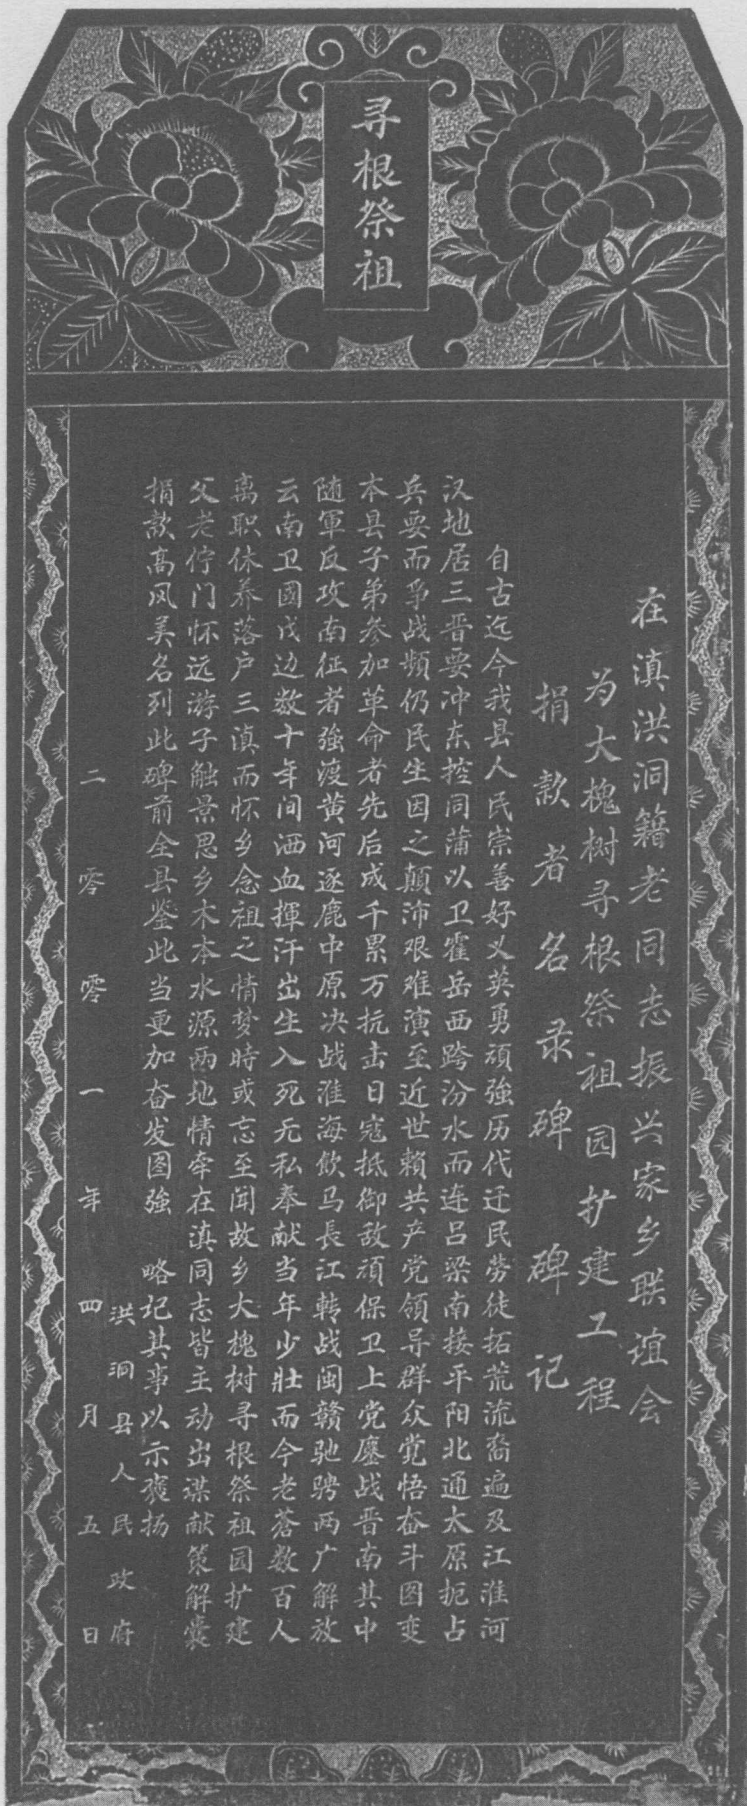 寻根祭祖
在滇洪洞籍老同志振兴家乡联谊会
为大槐树寻根祭祖园扩建工程
捐款者名录碑碑记
自古迄今我县人民崇善好义英勇頑強历代迁民劳徒拓荒流裔遍及江淮河
汉地居三晋要冲东控同蒲以卫霍岳西跨汾水而连吕梁南接平阳北通太原扼占
兵要而爭战频仍民生因之颠沛艰难演至近世賴共产党领导群众觉悟奋斗图变
本县子弟参加革命者先后成千累万抗击日寇抵御敌頑保卫上党鏖战晋南其中
随軍反攻南征者強渡黄河逐鹿中原决战淮海飲马長江转战闽赣驰骋两广解放
云南卫國戍边数十年间洒血揮汗出生入死无私奉献当年少壮而今老蒼数百人
离职休养落户三滇而怀乡念祖之情梦時或忘至闻故乡大槐树寻根祭祖园扩建
父老伫门怀远游子触景思乡木本水源两地情牵在滇同志皆主动出谋献策解囊
捐款高风美名列此碑前全县鉴此当更加奋发图強　略记其事以示褒扬
洪洞县人民政府
二零零一年四月五日